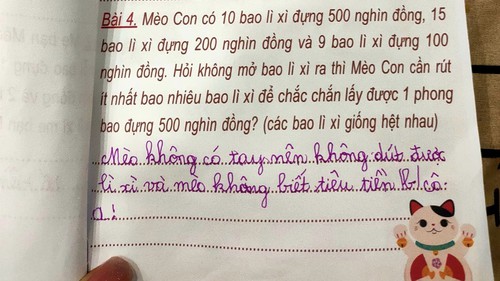 Bài 4. Mèo Con có 10 bao lì xì đựng 500 nghìn đồng, 15
bao lì xì đựng 200 nghìn đồng và 9 bao lì xì đựng 100
nghìn đồng. Hỏi không mở bao lì xì ra thì Mèo Con cần rút
ít nhất bao nhiêu bao lì xì để chắc chắn lấy được 1 phong
bao đựng 500 nghìn đồng? (các bao lì xì giống hệt nhau)
Mèo không có tay nên không dút được
lì xì và mèo không biết tiêu tiền cô
ạ!